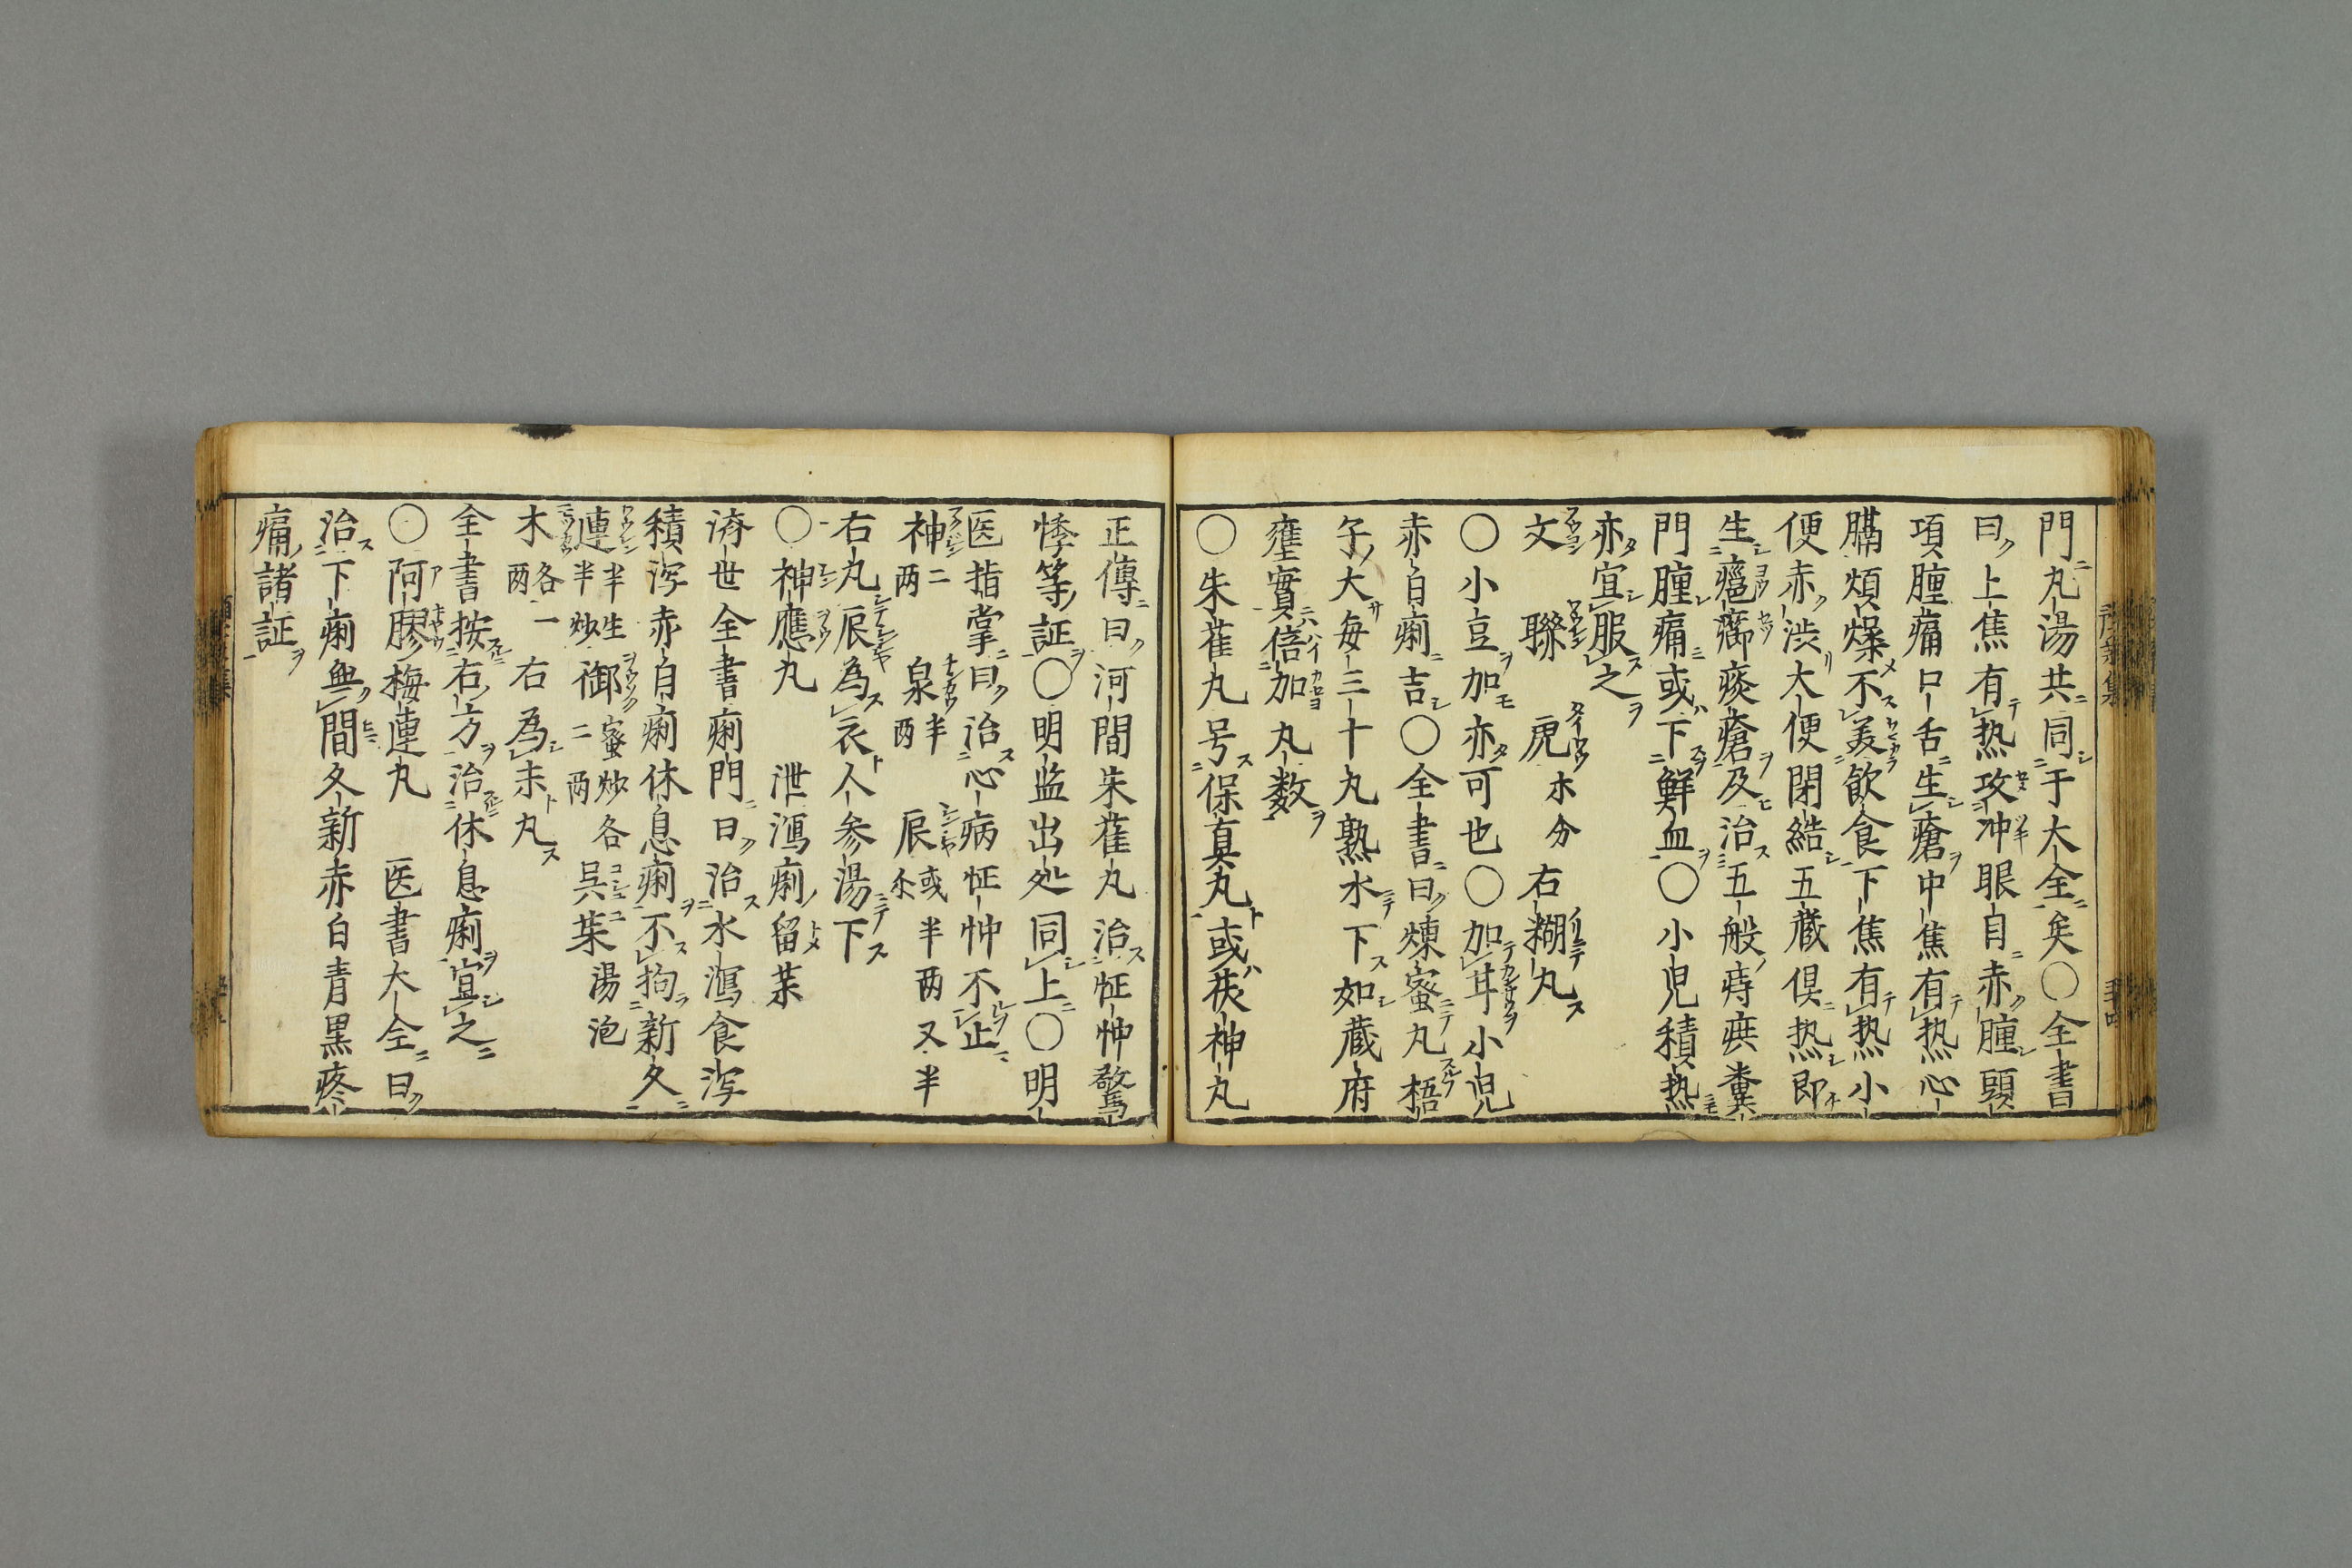 門丸湯共同于大全矣〇全書
曰上焦有热攻冲眼目赤腫頭
項腫痛口舌生瘡中焦有热心
膈煩燥不美飲食下焦有热小
便赤渋大便閉結五蔵倶热即
生癰癤痰瘡及治五般痔疾糞
門腫痛或下鮮血〇小児積热
亦宜服之
文 聯 虎 木分 右糊丸
〇小豆加亦可也〇加甘小児
赤白痢吉〇全書曰煉蜜丸梧
子大毎三十丸熟水下如蔵府
壅實倍加丸数
〇朱雀丸号保真丸或茯神丸
正傳曰河間朱雀丸治怔忡驚
悸等証〇明监出処同上〇明
医指掌曰治心病怔忡不止
神二两 泉半两 辰或 半两 又半
右丸辰為衣人参湯下
〇神應丸 泄瀉痢留葉
済世全書痢門曰治水瀉食泻
積泻赤白痢休息痢不拘新久
連半生半炒 御蜜炒二两 各 呉茱湯泡
木各一两 右為末丸
全書按右方治休息痢宜之
〇阿膠梅連丸 医書大全曰
治下痢無間久新赤白青黒疼
痛諸証